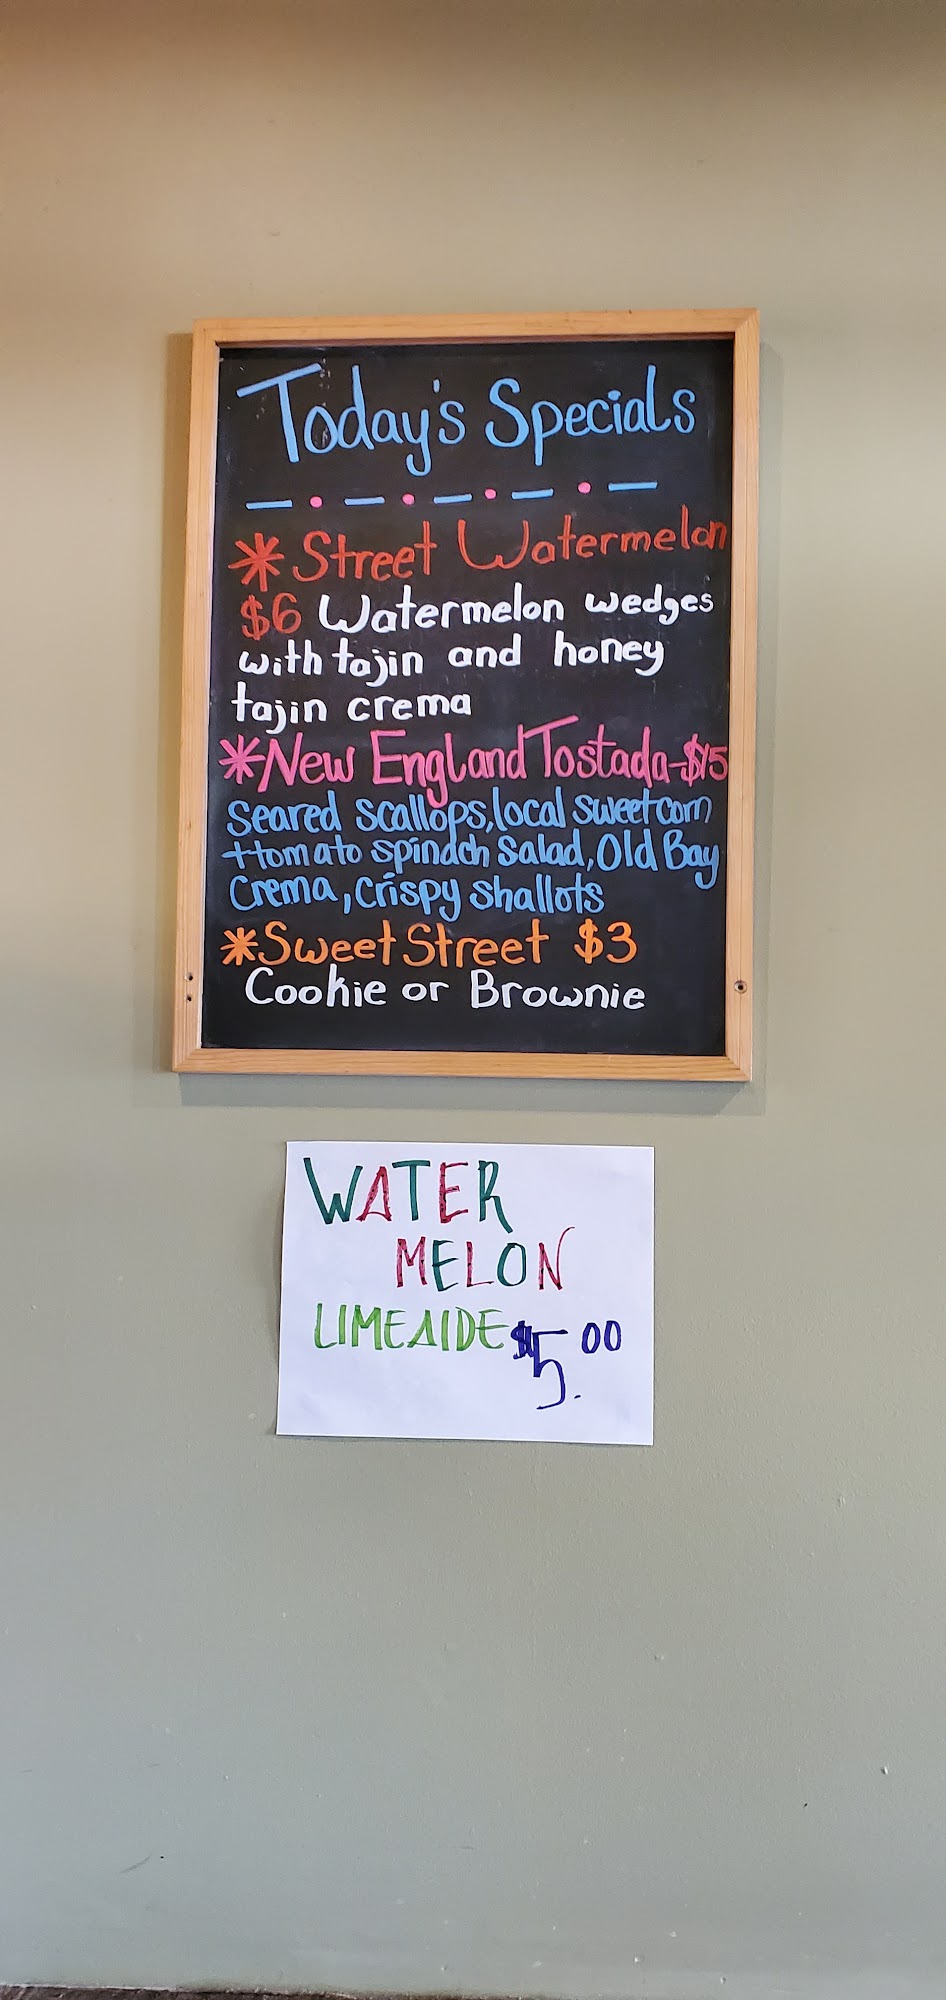 Today's Specials
*Street Watermelon
$6 Watermelon wedges
with tajin and honey
tajin crema
*New England Tostada-$15
Seared scallops, local sweet corn
+tomato spinach salad, Old Bay
Crema, crispy shallots
*Sweet Street $3
Cookie or Brownie
WATER
MELON
LIMEAIDE $5.00